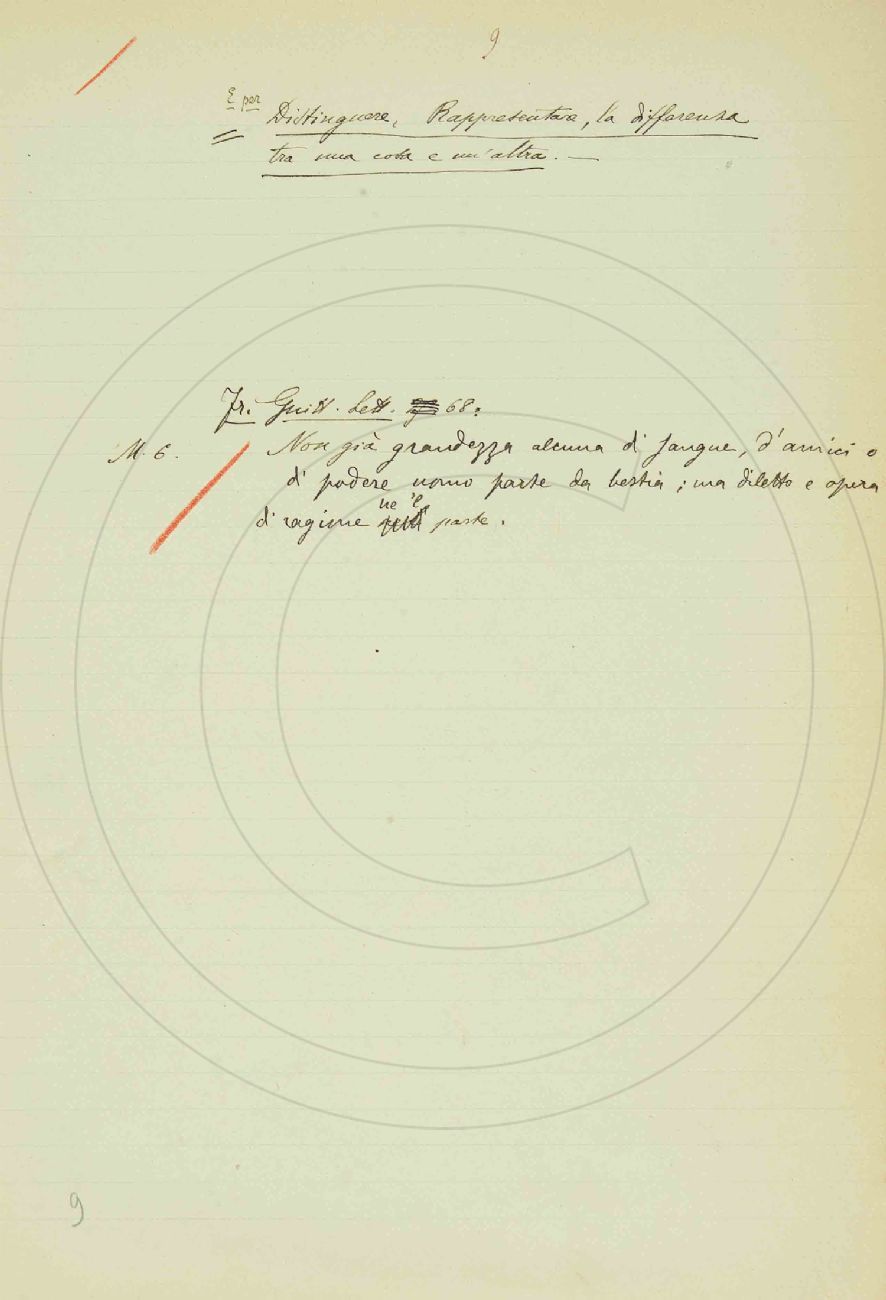 9
E per
Distinguere, Rappresentare, la differenza
tra una cosa e un'altra. —
Fr. Guitt. Lett. 68.
M. 6. Non già grandezza alcuna di sangue, d'amici o
di podere uomo parte da bestia; ma diletto e opera
di ragione ne 'l parte.
9